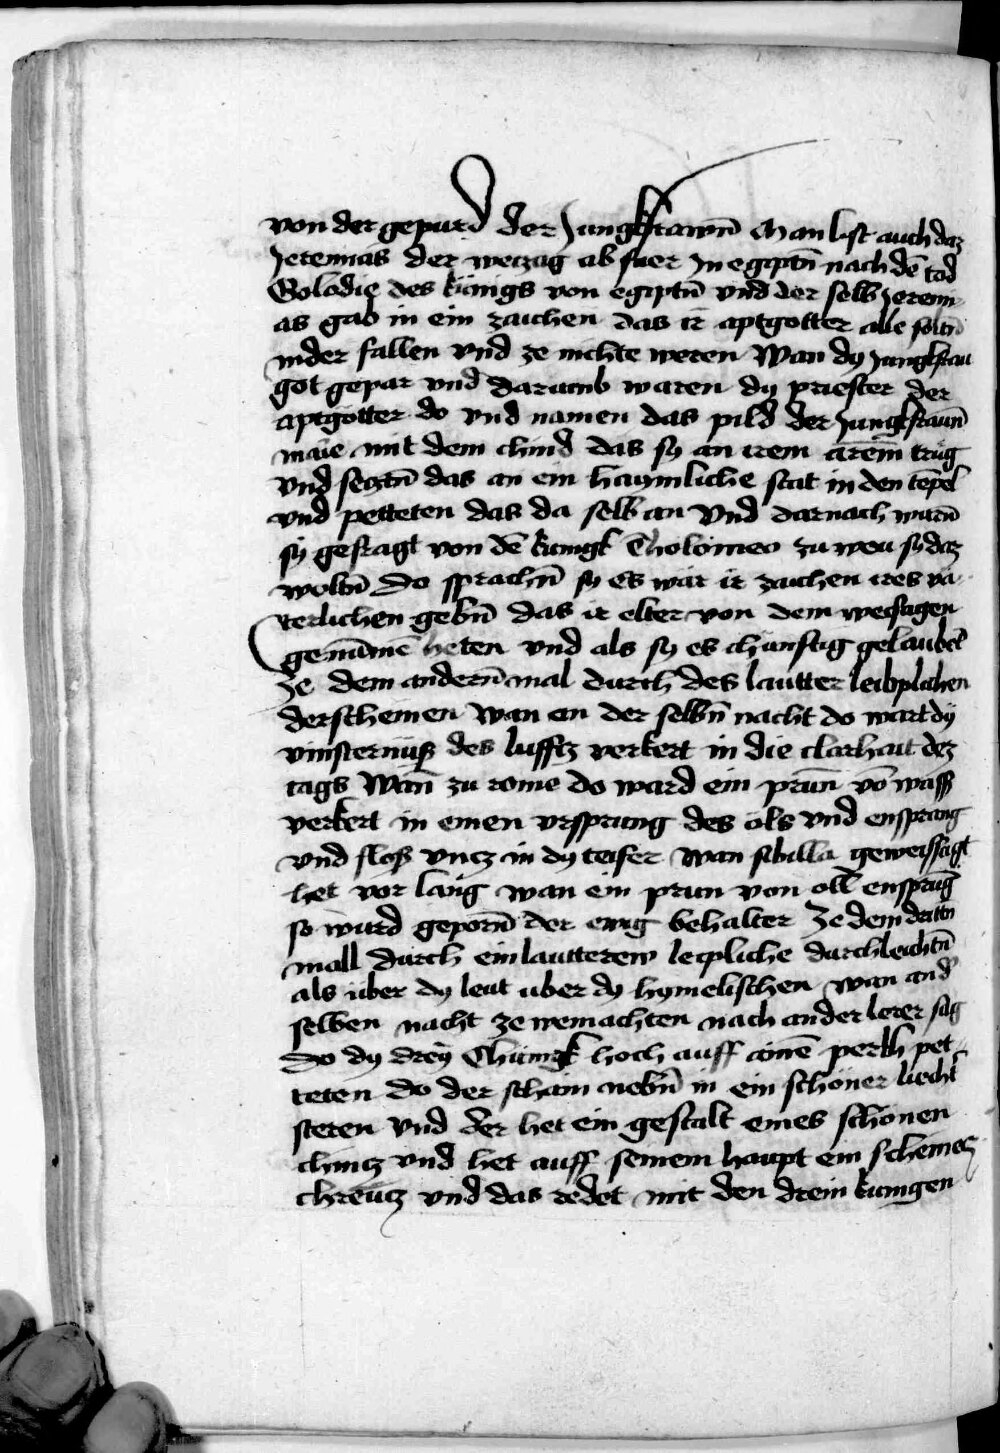 von der gepurd der Jungkfrawn̄ Man list auch daz
Jeremias der weyzag ab fuer In egiptn̄ nach dē tod
Golodie des künigs von egiptn̄ vnd der selb Jeremi-
as gab in ein zaichen das ir aptgotter alle soltn̄
nider fallen vnd ze nichte weren Wan dy Jungkfrau
got gepar vnd darumb waren dy priester der
aptgotter do vnd namen das pild der Jungkfraun̄
marie mit dem chind das sy an irem arem trüg
vnd seztn̄ das an ein haymliche stat in den tēpel
vnd petteten das da selb an Vnd darnach warn̄
sy gefragt von dē kunigk Tholomeo zu weu sy daz
woltn̄ Do sprachn̄ sy es wär ir zaichen ires vä-
terlichen gebn̄ das ir elter von dem weyssagen
genūmē heten vnd als sy es chünftig gelaubtē
Ze dem andern̄ mal durch des lautter leibplichen
derscheinen Wan an der selbn̄ nacht do wart dy
vinsternüss des lufftz verkert in die clarhait dez
tags Wan̄ zu rome do ward ein prūn vō wass
verkert in einen vrsprung des öls vnd ensprang
vnd floss vncz in dy teifer Wan sibilla geweissagt
het vor lang wan ein prun von oll ensprūg
so würd geporn̄ der ewig behalter Ze dem dritn̄
mall durch ein lautterew leipliche durchleichtn̄
als über dy leut uber dy hymelischen wan an d'
selben nacht ze weinachten nach ander lerer sag
do dy dreÿ Chünigk hoch auff ainē perkh pet-
teten do der scham nebn̄ in ein schöner liecht
steren vnd der het ein gestalt eines schonen
chincz vnd het auff seinem haupt ein scheines
chreücz vnd das redet mit den drein kunigen